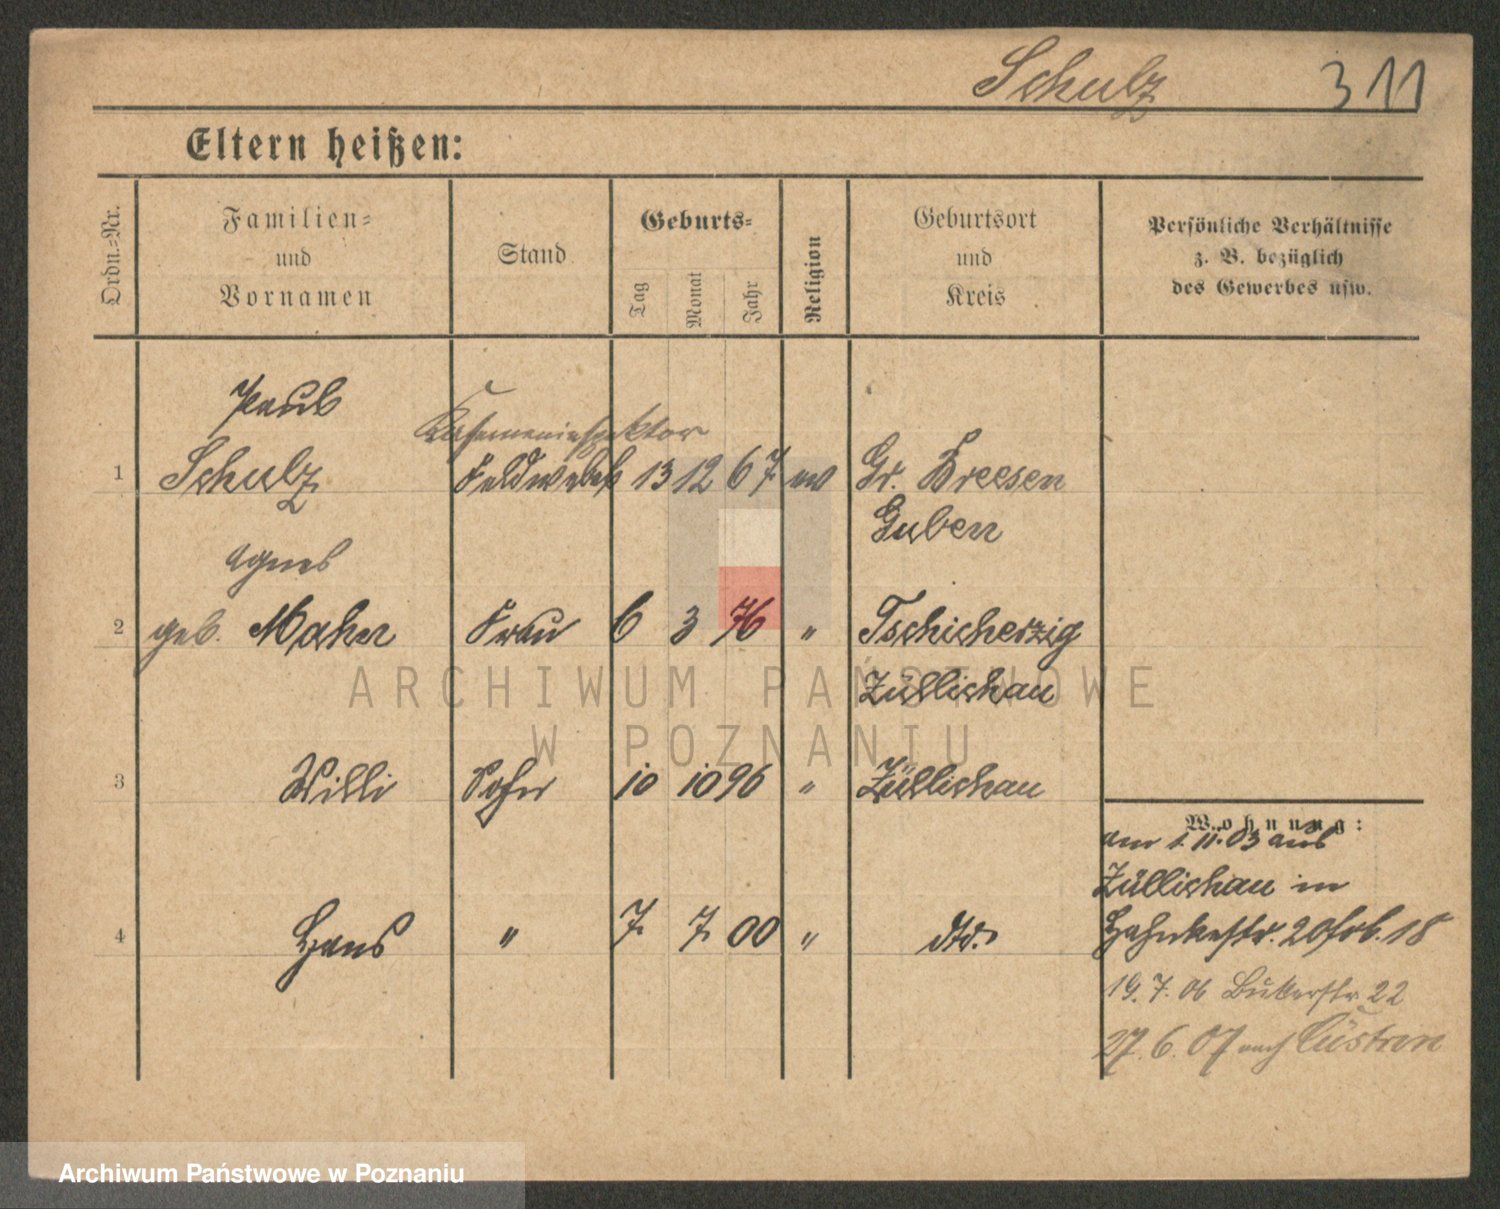 Schulz 311
Eltern heißen:
Ordn.=Nr.
Familien=
und
Vornamen
Stand
Geburts=
Tag
Monat
Jahr
Religion
Geburtsort
und
Kreis
Persönliche Verhältnisse
z. B. bezüglich
des Gewerbes usw.
Paul
Kaserneninspektor
1 Schulz Feldwebel 13 12 67 ev Gr. Breesen
Guben
Agnes
2 geb. Maher Frau 6 3 76 " Tschicherzig
Züllichau
3 Willi Sohn 10 10 96 " Züllichau
Wohnung:
am 1.11.03 aus
Züllichau in
4 Hans " 7 7 00 " dto.
20 18
19.7.06 Bukerstr. 22
27.6.07 nach Cüstrin
ARCHIWUM PAŃSTWOWE
W POZNANIU
Archiwum Państwowe w Poznaniu